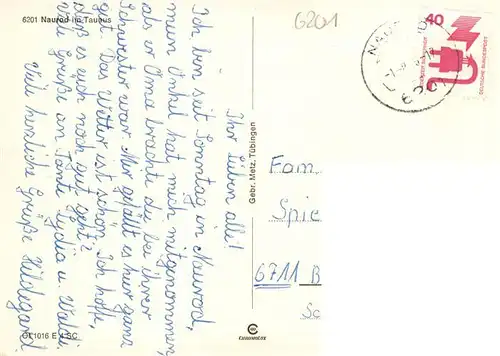 6201 Naurod im Taunus
6201
40
DEUTSCHE BUNDESPOST
Ihr lieben alle!
Ich bin seit Sonntag in Naurod,
mein Onkel hat mich mitgenommen,
als er Oma brachte die bei ihrer
Schwester war. Mir gefällt es hier ganz
gut. Das Wetter ist schön. Ich hoffe,
daß es euch noch gut geht?
viele Grüße an Tante Lydia u. Walli.
Viele herzliche Grüße Hildegard.
Gebr. Metz, Tübingen
Fam
Spie
6711 B
GL 1016 E 4 SC